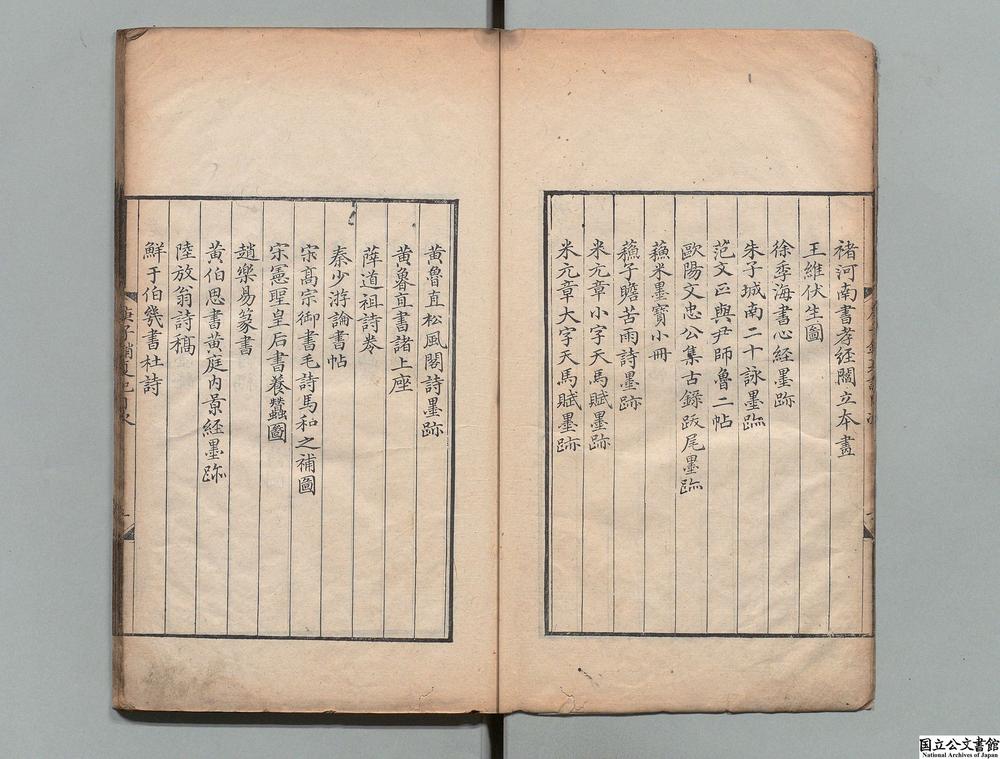 褚河南書孝經閻立本畫
王維伏生圖
徐季海書心經墨跡
朱子城南二十詠墨跡
范文正與尹師魯二帖
歐陽文忠公集古錄跋尾墨跡
蘓米墨寳小冊
蘓子瞻苦雨詩墨跡
米元章小字天馬賦墨跡
米元章大字天馬賦墨跡
黃魯直松風閣詩墨跡
黃魯直書諸上座
薛道祖詩卷
秦少游論書帖
宋高宗御書毛詩馬和之補圖
宋憲聖皇后書養蠶圖
趙樂易篆書
黃伯思書黃庭內景經墨跡
陸放翁詩稿
鮮于伯幾書杜詩
国立公文書館
National Archives of Japan